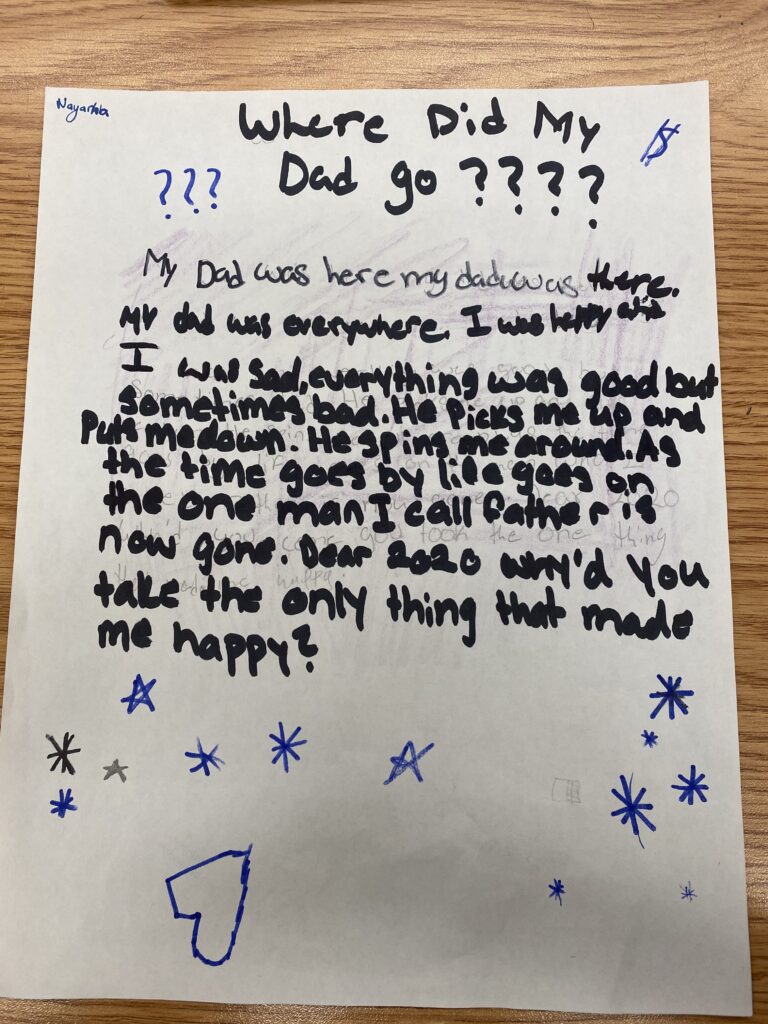 Where Did My
Dad go ????
???
$
My Dad was here my dad was there.
My dad was everywhere. I was happy
I was sad, everything was good but
sometimes bad. He Picks me up and
Puts me down. He spins me around. As
the time goes by life goes on
the one man I call father is
now gone. Dear 2020 why'd you
take the only thing that made
me happy?